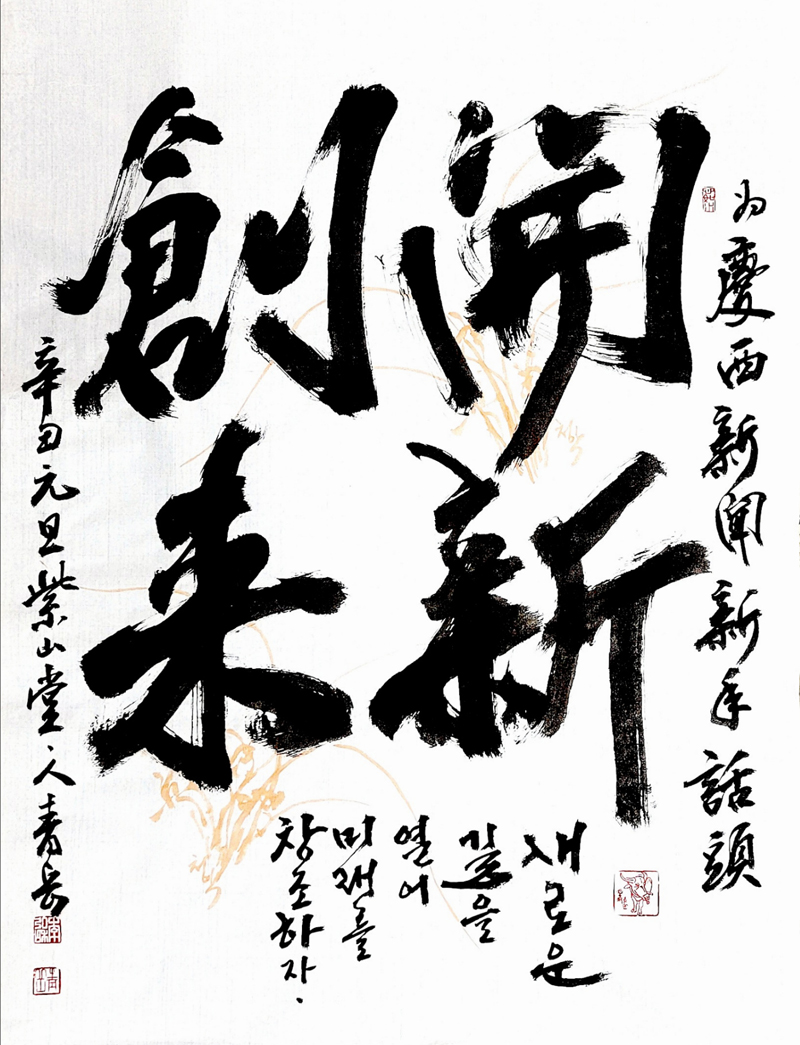 为慶西新聞新年話頭
開新
創来
새로운
길을
열어
미래를
창조하자.
辛丑元旦紫山堂人青岳